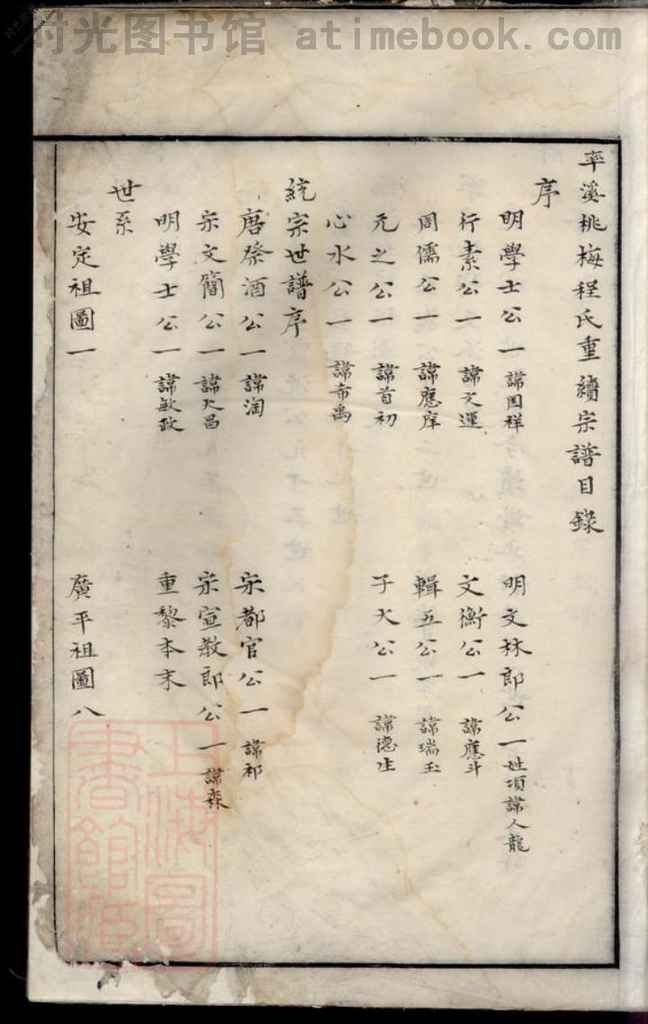 时光图书馆 atimebook.com
率溪桃梅程氏重續宗譜目錄
序
明學士公一 諱國祥 明文林郎公一 姓項諱人龍
行素公一 諱文運 文衡公一 諱應斗
同儒公一 諱應庠 輯五公一 諱瑞玉
元之公一 諱首初 子大公一 諱德生
心水公一 諱希禹
統宗世譜序
唐祭酒公一 諱淘 宋都官公一 諱祁
宋文簡公一 諱大昌 宋宣教郎公一 諱森
明學士公一 諱敏政 重黎本末
世系
安定祖圖一 廣平祖圖八
上海圖書館藏